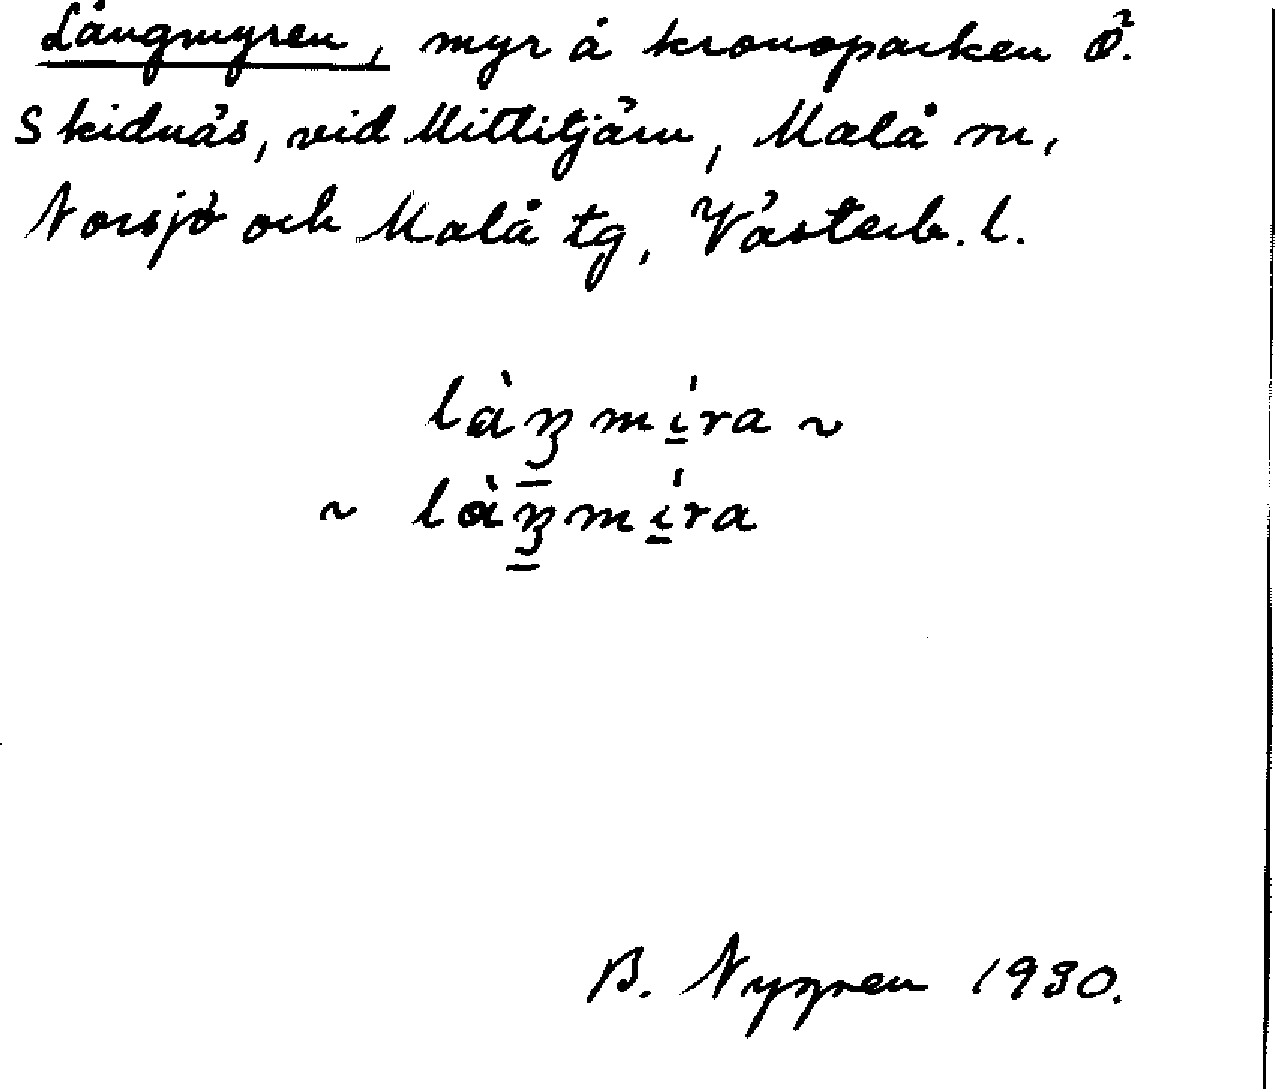 Långmyren, myr å kronoparken Ö.
Skidnäs, vid Mittitjärn, Malå sn,
Norsjö och Malå tg, Västerb. l.
B. Nygren 1930.